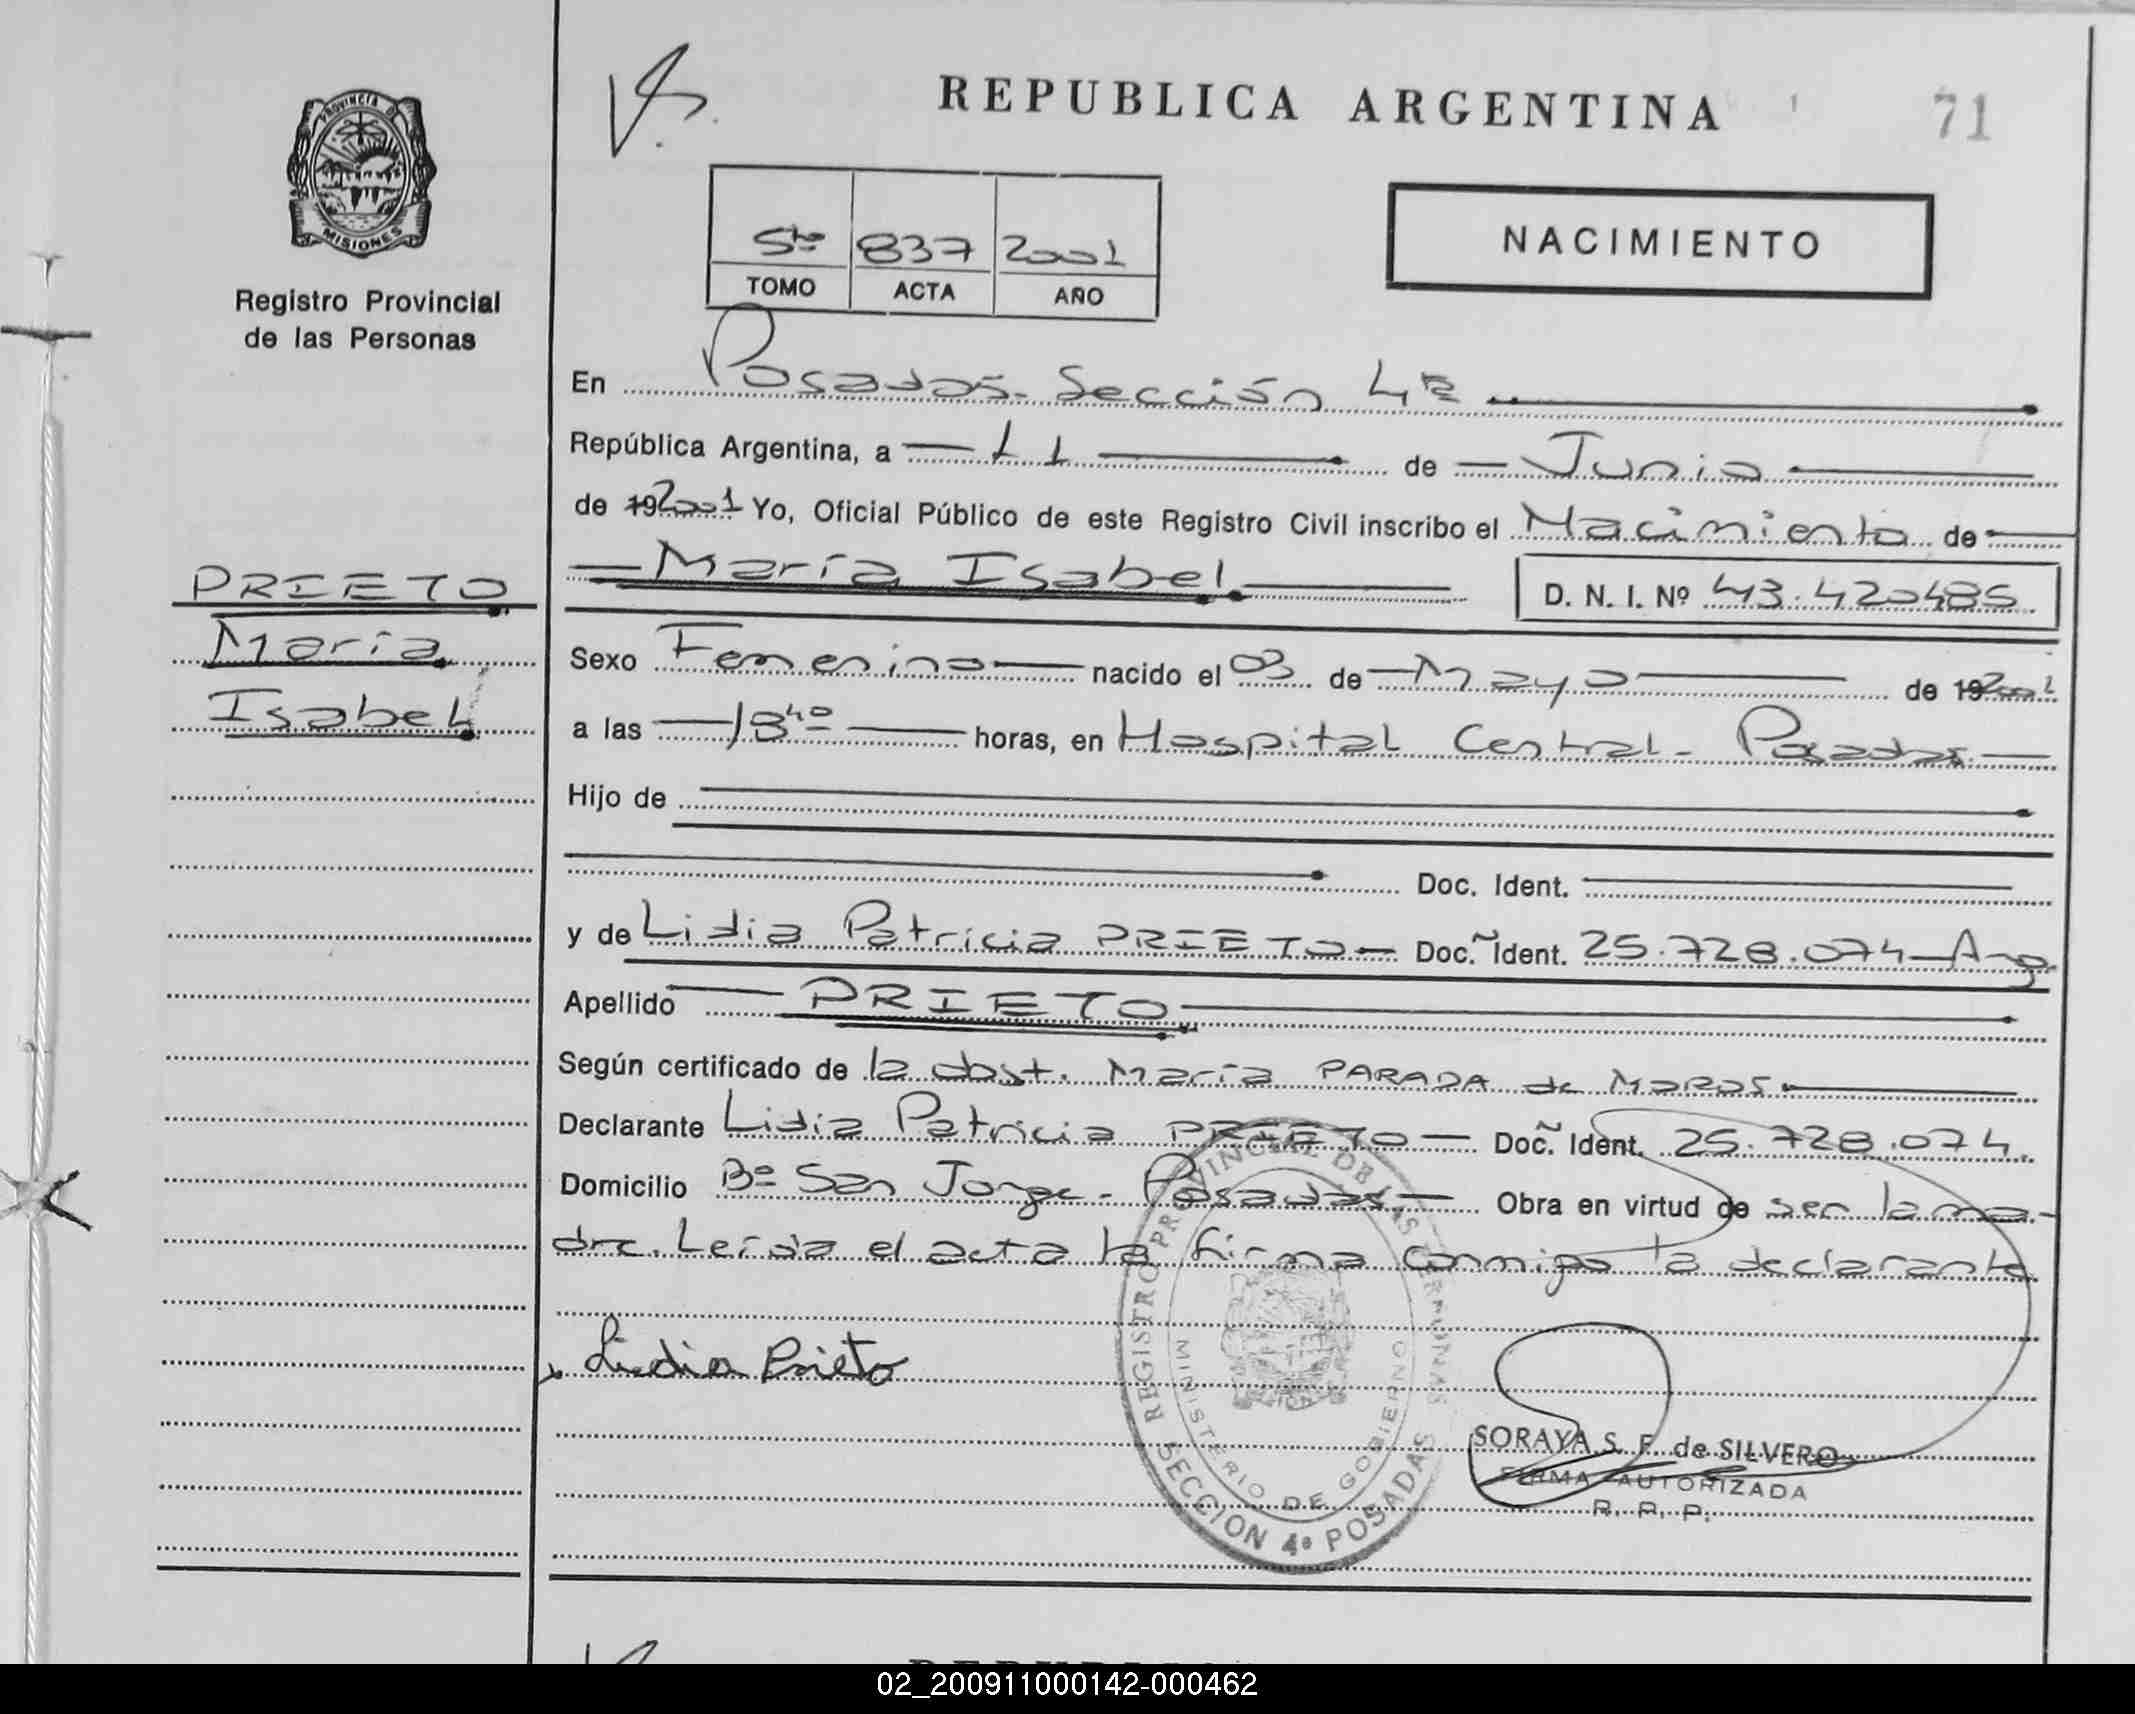 REPUBLICA ARGENTINA
71
PROVINCIA D
MISIONES
Registro Provincial
de las Personas
5to 837 2001
TOMO ACTA AÑO
NACIMIENTO
En Posadas. Sección 4ª
República Argentina, a 11 de Junio
de 192001 Yo, Oficial Público de este Registro Civil inscribo el Nacimiento de
María Isabel D. N. I. Nº 43.420485
PRIETO
María
Isabel
Sexo Femenino nacido el 03 de Mayo de 192001
a las 18 40 horas, en Hospital Central - Posadas
Hijo de
Doc. Ident.
y de Lidia Patricia PRIETO Doc. Ident. 25.728.074 Arg
Apellido PRIETO
Según certificado de la obst. María PARADA de
Declarante Lidia Patricia PRIETO Doc. Ident. 25.728.074.
Domicilio Bº San Jorge - Posadas Obra en virtud de ser la ma-
dre. Leída el acta la firma conmigo la declarante
Lidia Prieto
REGISTRO PROVINCIAL DE LAS PERSONAS
MINISTERIO DE GOBIERNO
SECCION 4ª POSADAS
SORAYA S. F. de SILVERO
FIRMA AUTORIZADA
R. P. P.
02_200911000142-000462